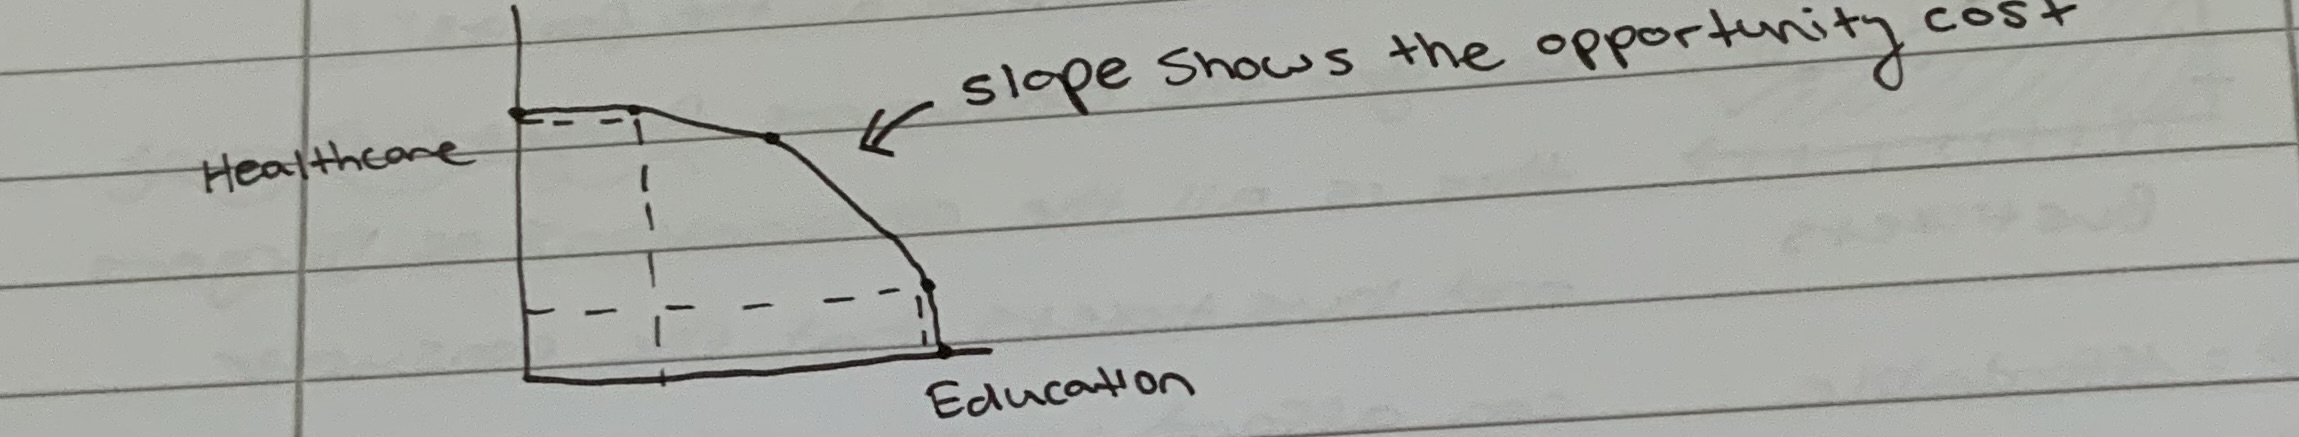 slope shows the opportunity cost
Healthcare
Education